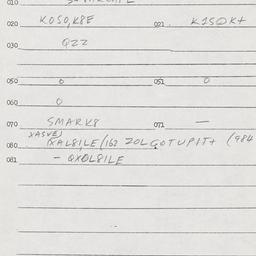 010
020 KOSO,K8E 021. K1SOK+
030 QZZ
050 0 051 0
060 0
070 SMARK8 071 —
080 XAL8ILE/162 ZOLGOTUPIT+ (984
081 - QXOL8ILE